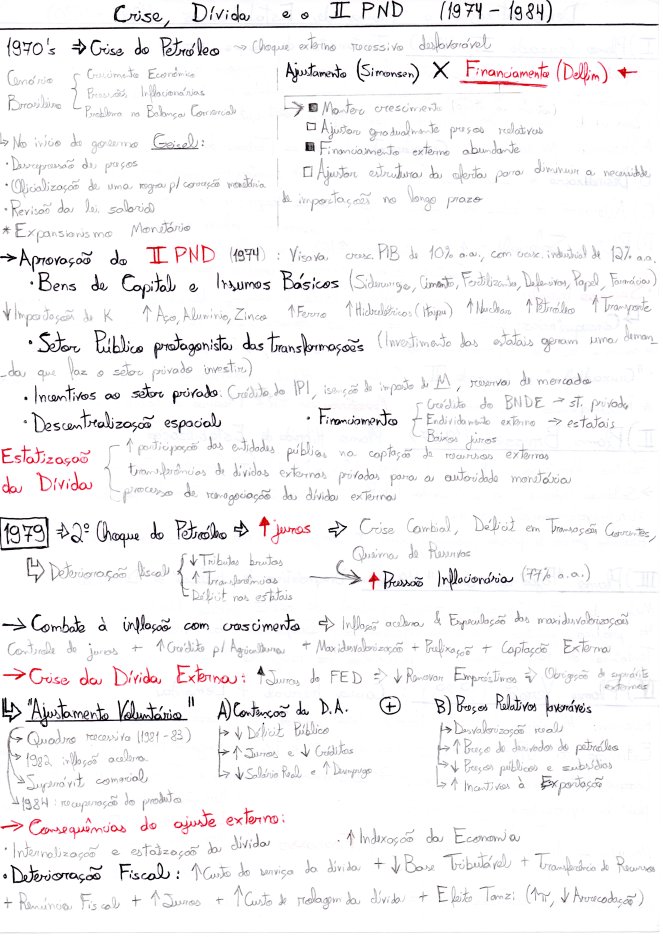 Crise, Dívida e o II PND (1974 - 1984)
1970's ⇒ Crise do Petróleo → Choque externo recessivo desfavorável
Cenário Brasileiro { Crescimento Econômico
Pressões Inflacionárias
Problema na Balança Comercial
Ajustamento (Simonsen) X Financiamento (Delfim) ←
↳ No início do governo Geisel:
• Descompressão de preços
• Oficialização de uma regra p/ correção monetária
• Revisão da lei salarial
* Expansionismo Monetário
→ ■ Manter crescimento
□ Ajustar gradualmente preços relativos
■ Financiamento externo abundante
□ Ajustar estrutura da oferta para diminuir a necessidade
de importações no longo prazo
→ Aprovação do II PND (1974) : Visava cresc. PIB de 10% a.a., com cresc. industrial de 12% a.a.
• Bens de Capital e Insumos Básicos (Siderurgia, Cimento, Fertilizante, Defensivos, Papel, Farmácia)
↓ Importação de K ↑ Aço, Alumínio, Zinco ↑ Ferro ↑ Hidrelétricas (Itaipu) ↑ Nuclear ↑ Petróleo ↑ Transporte
• Setor Público protagonista das transformações (Investimento das estatais geram uma deman_
_da que faz o setor privado investir)
• Incentivos ao setor privado: Crédito do IPI, isenção de imposto de M, reserva de mercado
• Descentralização espacial
• Financiamento { Crédito do BNDE → st. privado
Endividamento externo → estatais
Baixos juros
Estatização da Dívida { ↑ participação das entidades públicas na captação de recursos externos
transferências de dívidas externas privadas para a autoridade monetária
processo de renegociação da dívida externa
1979 ⇒ 2º Choque do Petróleo ⇒ ↑ juros ⇒ Crise Cambial, Déficit em Transações Correntes,
Queima de Reservas
↳ Deterioração fiscal { ↓ Tributos brutos
↑ Transferências
Déficit nas estatais
→ ↑ Pressão Inflacionária (77% a.a.)
→ Combate à inflação com crescimento ⇒ Inflação acelera & Especulação das maxidesvalorizações
Controle de juros + ↑ Crédito p/ Agricultura + Maxidesvalorização + Prefixação + Captação Externa
→ Crise da Dívida Externa: ↑ Juros do FED ⇒ ↓ Renovar Empréstimos ⇒ Obrigação de superávits
externos
↳ "Ajustamento Voluntário"
→ Quadro recessivo (1981 - 83)
→ 1982 inflação acelera
→ Superávit comercial
→ 1984: recuperação do produto
A) Contenção da D.A.
↳ ↓ Déficit Público
↳ ↑ Juros e ↓ Créditos
↳ ↓ Salário Real e ↑ Desemprego
+
B) Preços Relativos favoráveis
↳ Desvalorização real
↳ ↑ Preço de derivados de petróleo
↳ ↓ Preços públicos e subsídios
↳ ↑ Incentivos à Exportação
→ Consequências do ajuste externo:
• Internalização e estatização da dívida • ↑ Indexação da Economia
• Deterioração Fiscal: ↑ Custo do serviço da dívida + ↓ Base Tributável + Transferência de Recursos
+ Renúncia Fiscal + ↑ Juros + ↑ Custo de rolagem da dívida + Efeito Tanzi (↑π, ↓ Arrecadação)